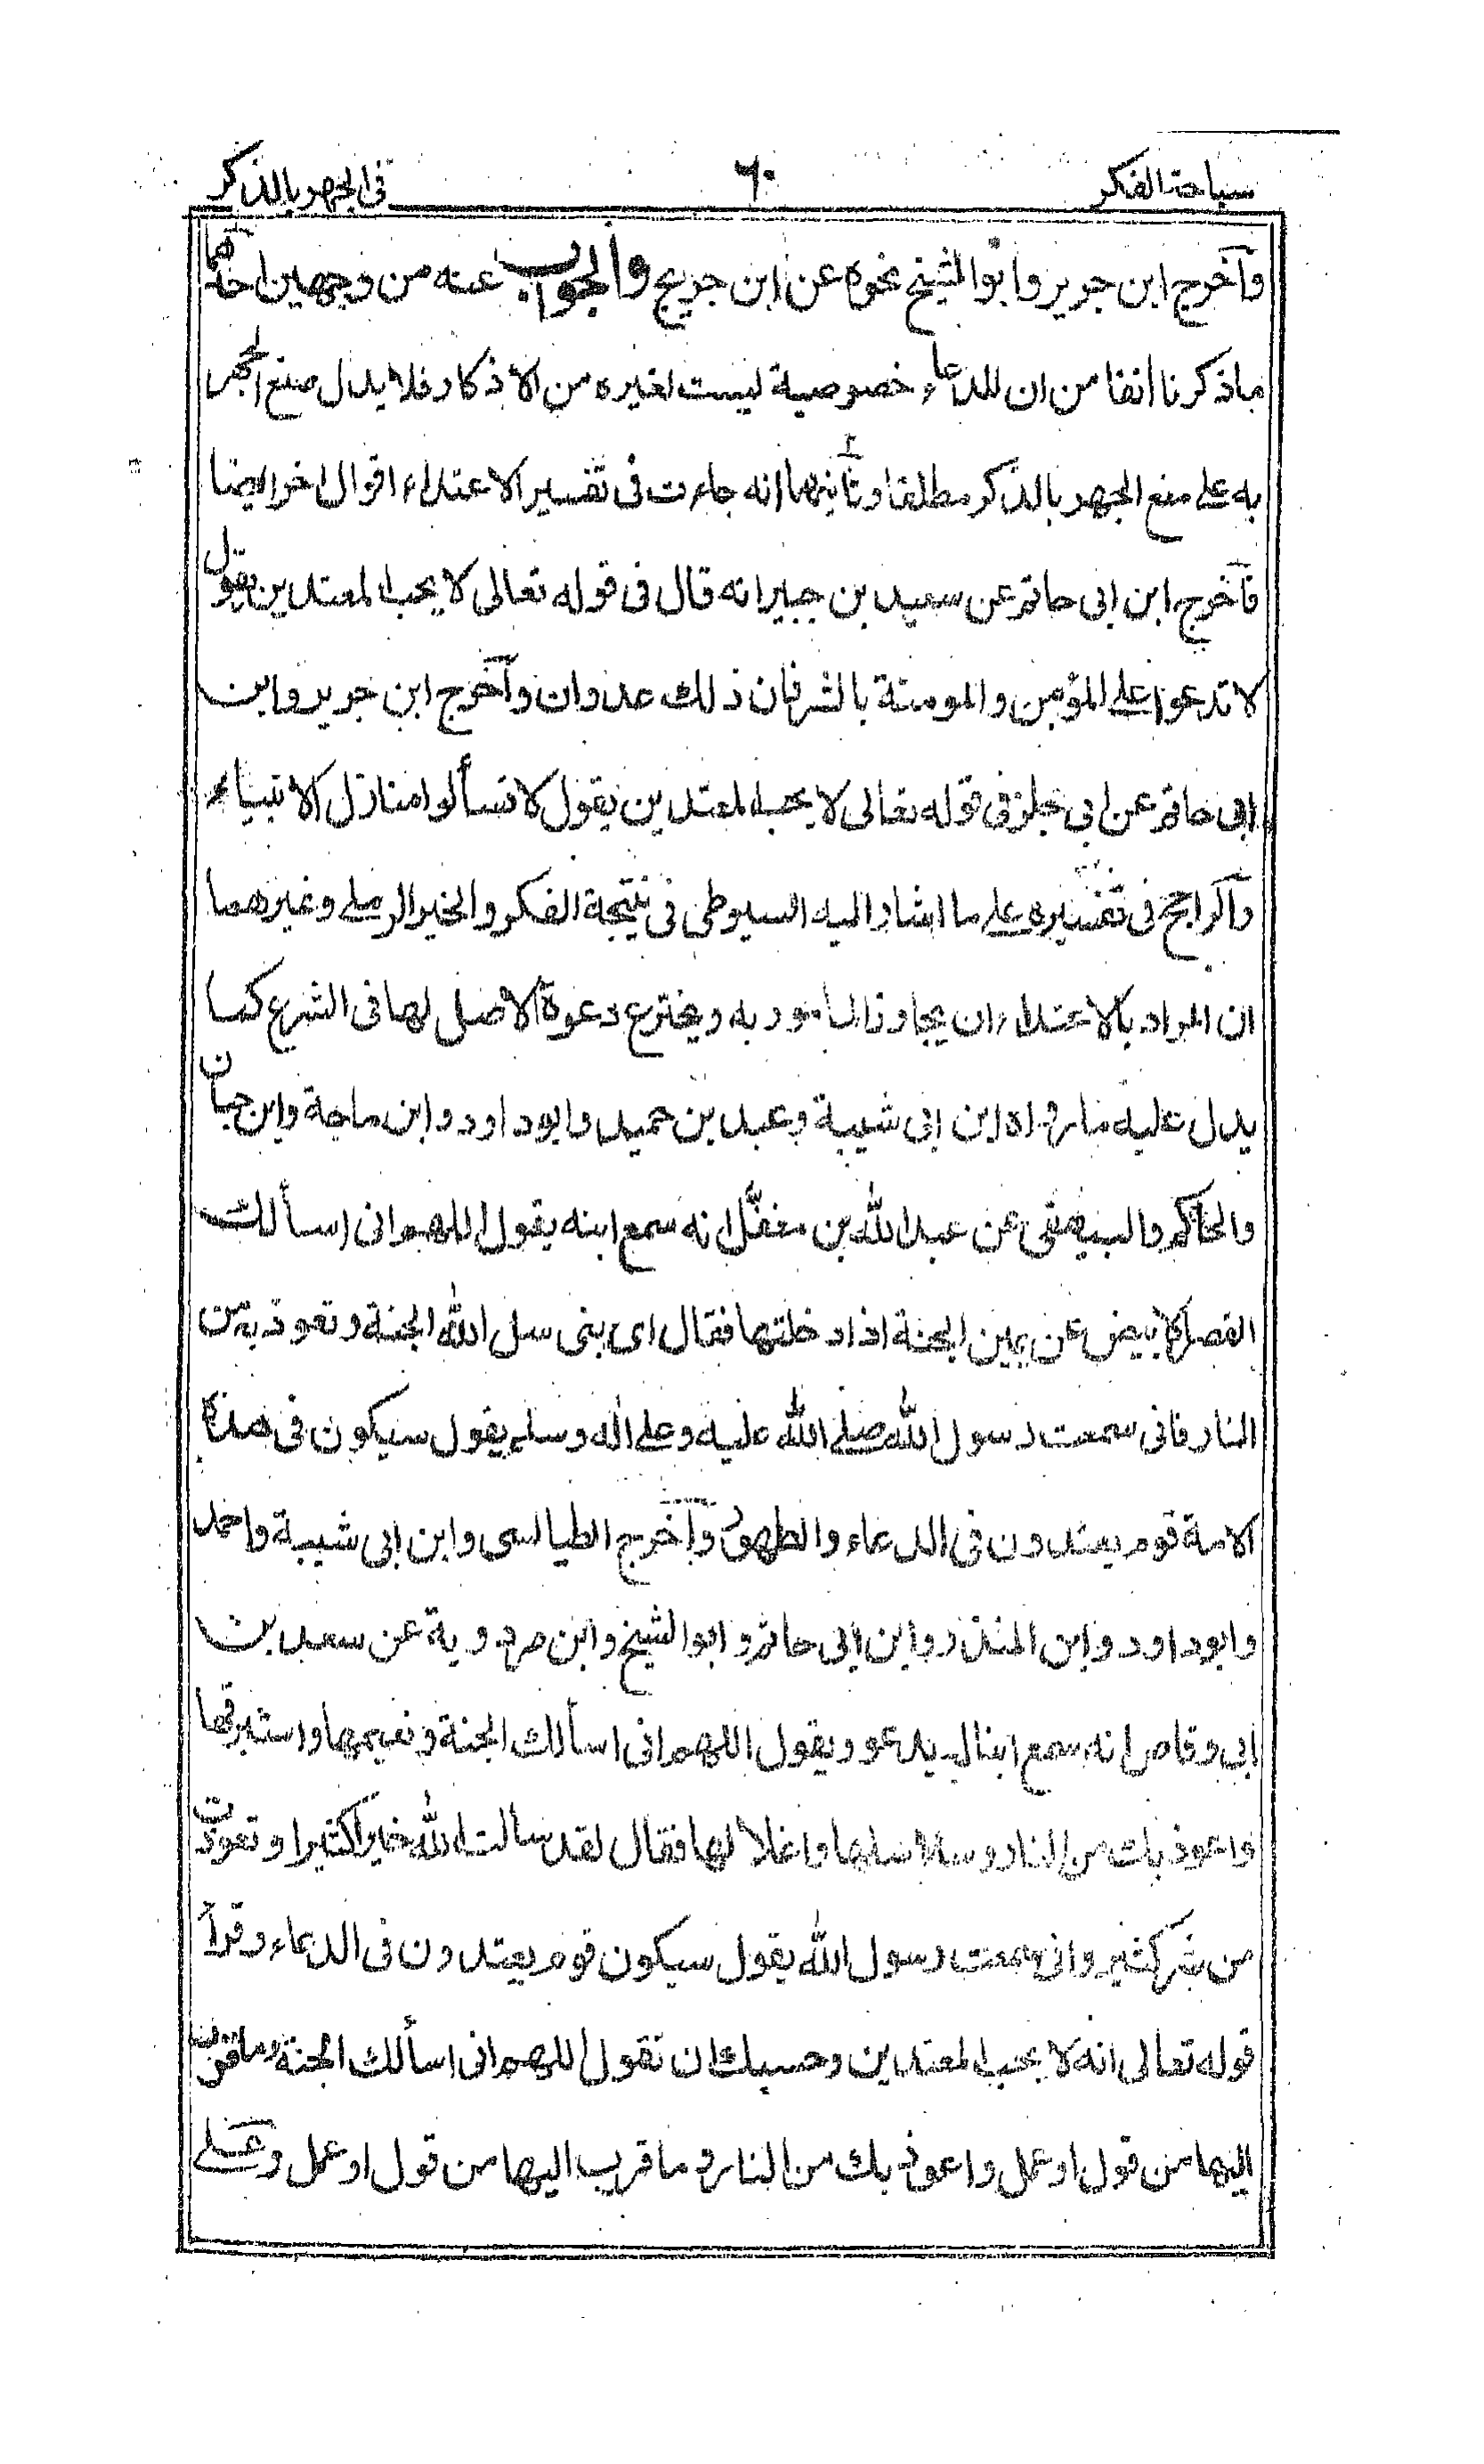 سباحة الفكر ٦٠ فى الجهر بالذكر
وآخرج ابن جرير وابو الشيخ نحوه عن ابن جريج والجواب عنه من وجهين احدهما
ماذكرنا انفا من ان للدعاء خصوصية ليست لغيره من الاذكار فلا يدل منع الجهر
به على منع الجهر بالذكر مطلقا وثانيهما انه جاءت فى تفسير الاعتداء اقوال اخر ايضا
فآخرج ابن ابى حاتم عن سعيد بن جبير انه قال فى قوله تعالى لا يحب المعتدين يقول
لا تدعوا على المؤمن والمومنة بالشر فان ذلك عدوان وآخرج ابن جرير وابن
ابى حاتم عن ابى مجلز فى قوله تعالى لا يحب المعتدين يقول لا تسألوا منازل الانبياء
وآلراجح فى تفسيره على ما اشار اليه السيوطى فى نتيجة الفكر والخير الرملى وغيرهما
ان المراد بالاعتداء ان يجاوز المامور به ويخترع دعوة لا اصل لها فى الشرع كما
يدل عليه ما رواه ابن ابى شيبة وعبد بن حميد وابو داود وابن ماجة وابن حبان
والحاكم والبيهقى عن عبد الله بن مغفل انه سمع ابنه يقول اللهم انى اسألك
القصر الابيض عن يمين الجنة اذا دخلتها فقال اى بنى سل الله الجنة وتعوذ به من
النار فانى سمعت رسول الله صلى الله عليه وعلى اله وسلم يقول سيكون فى هذه
الامة قوم يعتدون فى الدعاء والطهور وآخرج الطيالسى وابن ابى شيبة واحمد
وابو داود وابن المنذر وابن ابى حاتم وابو الشيخ وابن مردوية عن سعد بن
ابى وقاص انه سمع ابنا له يدعو ويقول اللهم انى اسألك الجنة ونعيمها واستبرقها
واعوذ بك من النار وسلاسلها واغلالها فقال لقد سالت الله خيرا كثيرا وتعوذت
من شر كثير وانى سمعت رسول الله يقول سيكون قوم يعتدون فى الدعاء وقرأ
قوله تعالى انه لا يحب المعتدين وحسبك ان تقول اللهم انى اسألك الجنة وما قرب
اليها من قول او عمل واعوذ بك من النار وما قرب اليها من قول او عمل وعلى